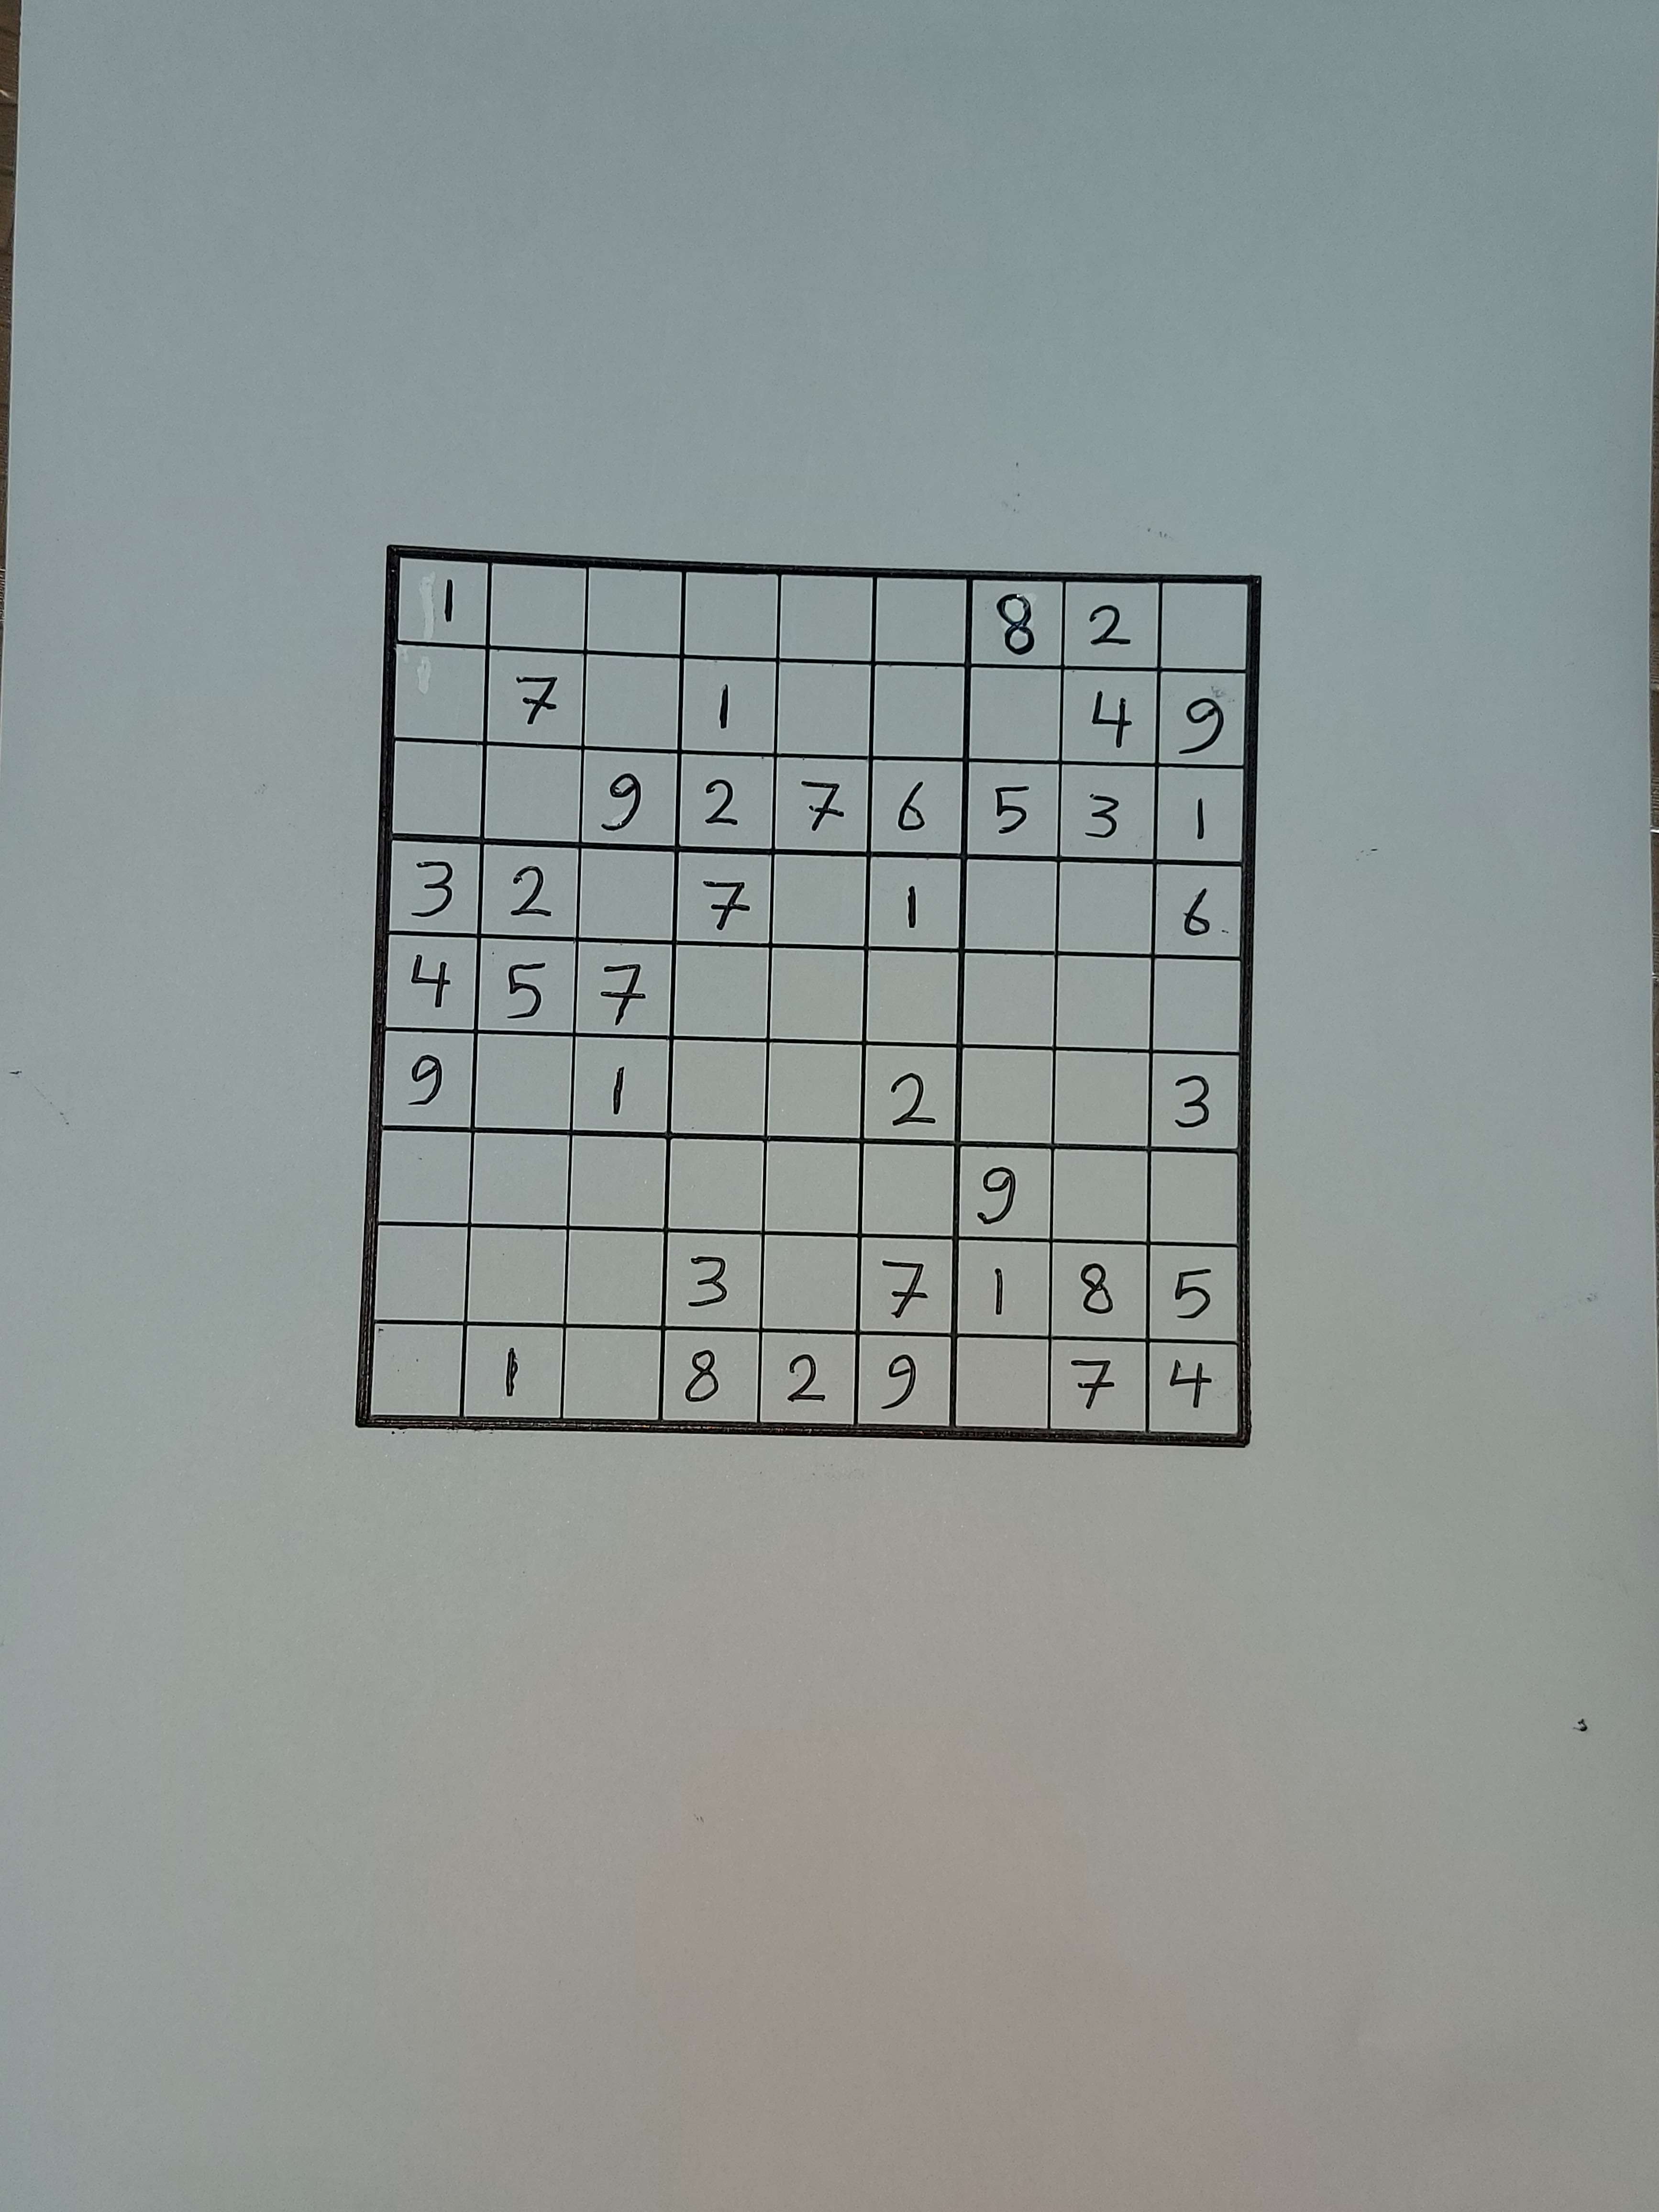 1 8 2
7 1 4 9
9 2 7 6 5 3 1
3 2 7 1 6
4 5 7
9 1 2 3
9
3 7 1 8 5
1 8 2 9 7 4